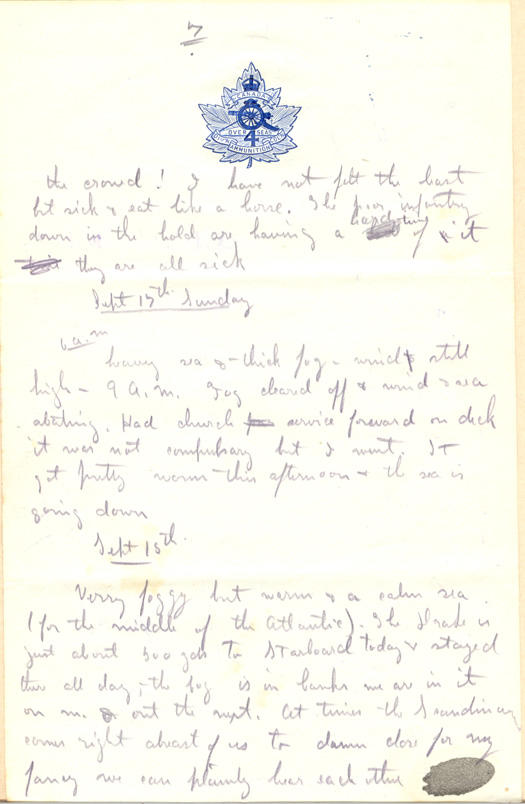 7
CANADA
OVER SEAS
4
AMMUNITION
the crowd! I have not felt the least
bit sick & eat like a horse. The poor infantry
down in the hold are having a hard time of it
they are all sick
Sept 17th Sunday
6 a.m
heavy sea & thick fog - wind still
high - 9 A.M. Fog cleared off & wind & sea
abating. Had church service forward on deck
it was not compulsary but I went. It
got pretty warm this afternoon & the sea is
going down
Sept 18th
Verry foggy but warm & a calm sea
(for the middle of the Atlantic). The Drake is
just about 500 yds to Starboard today & stayed
there all day, the fog is in banks we are in it
on m. out the next. At times the Scandinavian
comes right abreast of us to damn close for my
fancy we can plainly hear each other